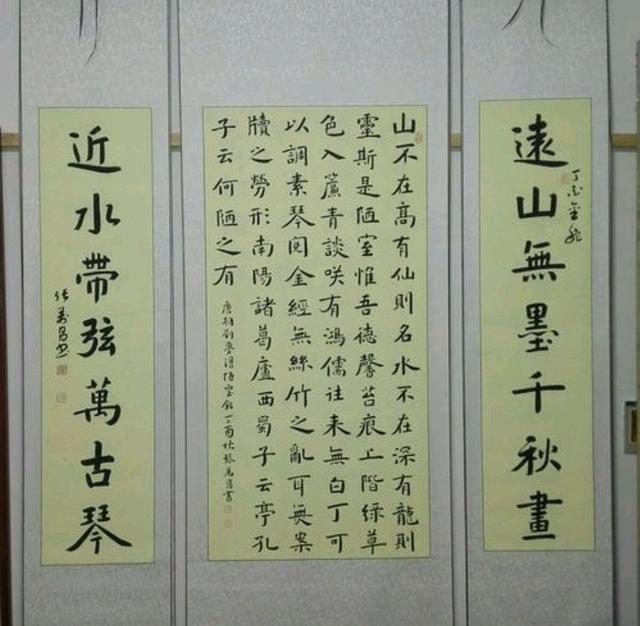 遠山無墨千秋畫
丁酉金秋
山不在髙有仙則名水不在深有龍則
靈斯是陋室惟吾德馨苔痕上階绿草
色入簾青談咲有鴻儒往来無白丁可
以調素琴閲金經無絲竹之亂耳無案
牘之勞形南陽諸葛廬西蜀子云亭孔
子云何陋之有
唐朝刘夢得陋室銘丁酉秋張萬昌書
近水帶弦萬古琴
张萬昌书